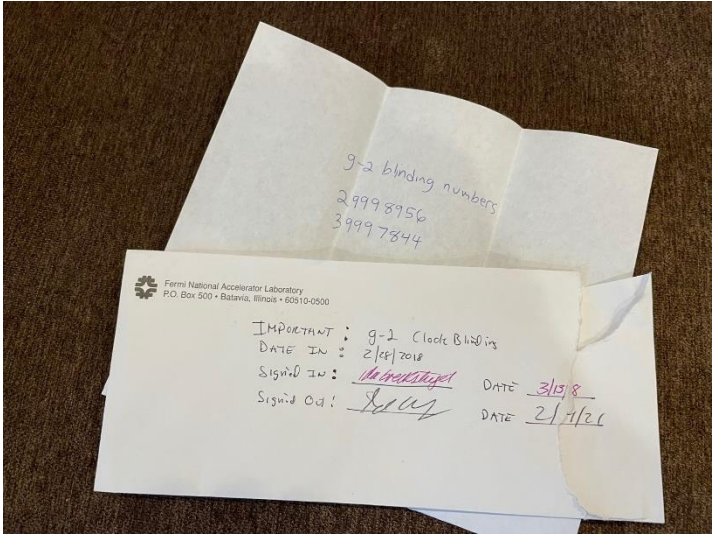 g-2 blinding numbers
29998956
39997844
Fermi National Accelerator Laboratory
P.O. Box 500 • Batavia, Illinois • 60510-0500
IMPORTANT: g-2 Clock Blinding
DATE IN: 2/28/2018
Signed IN: DATE 3/13/8
Signed Out: DATE